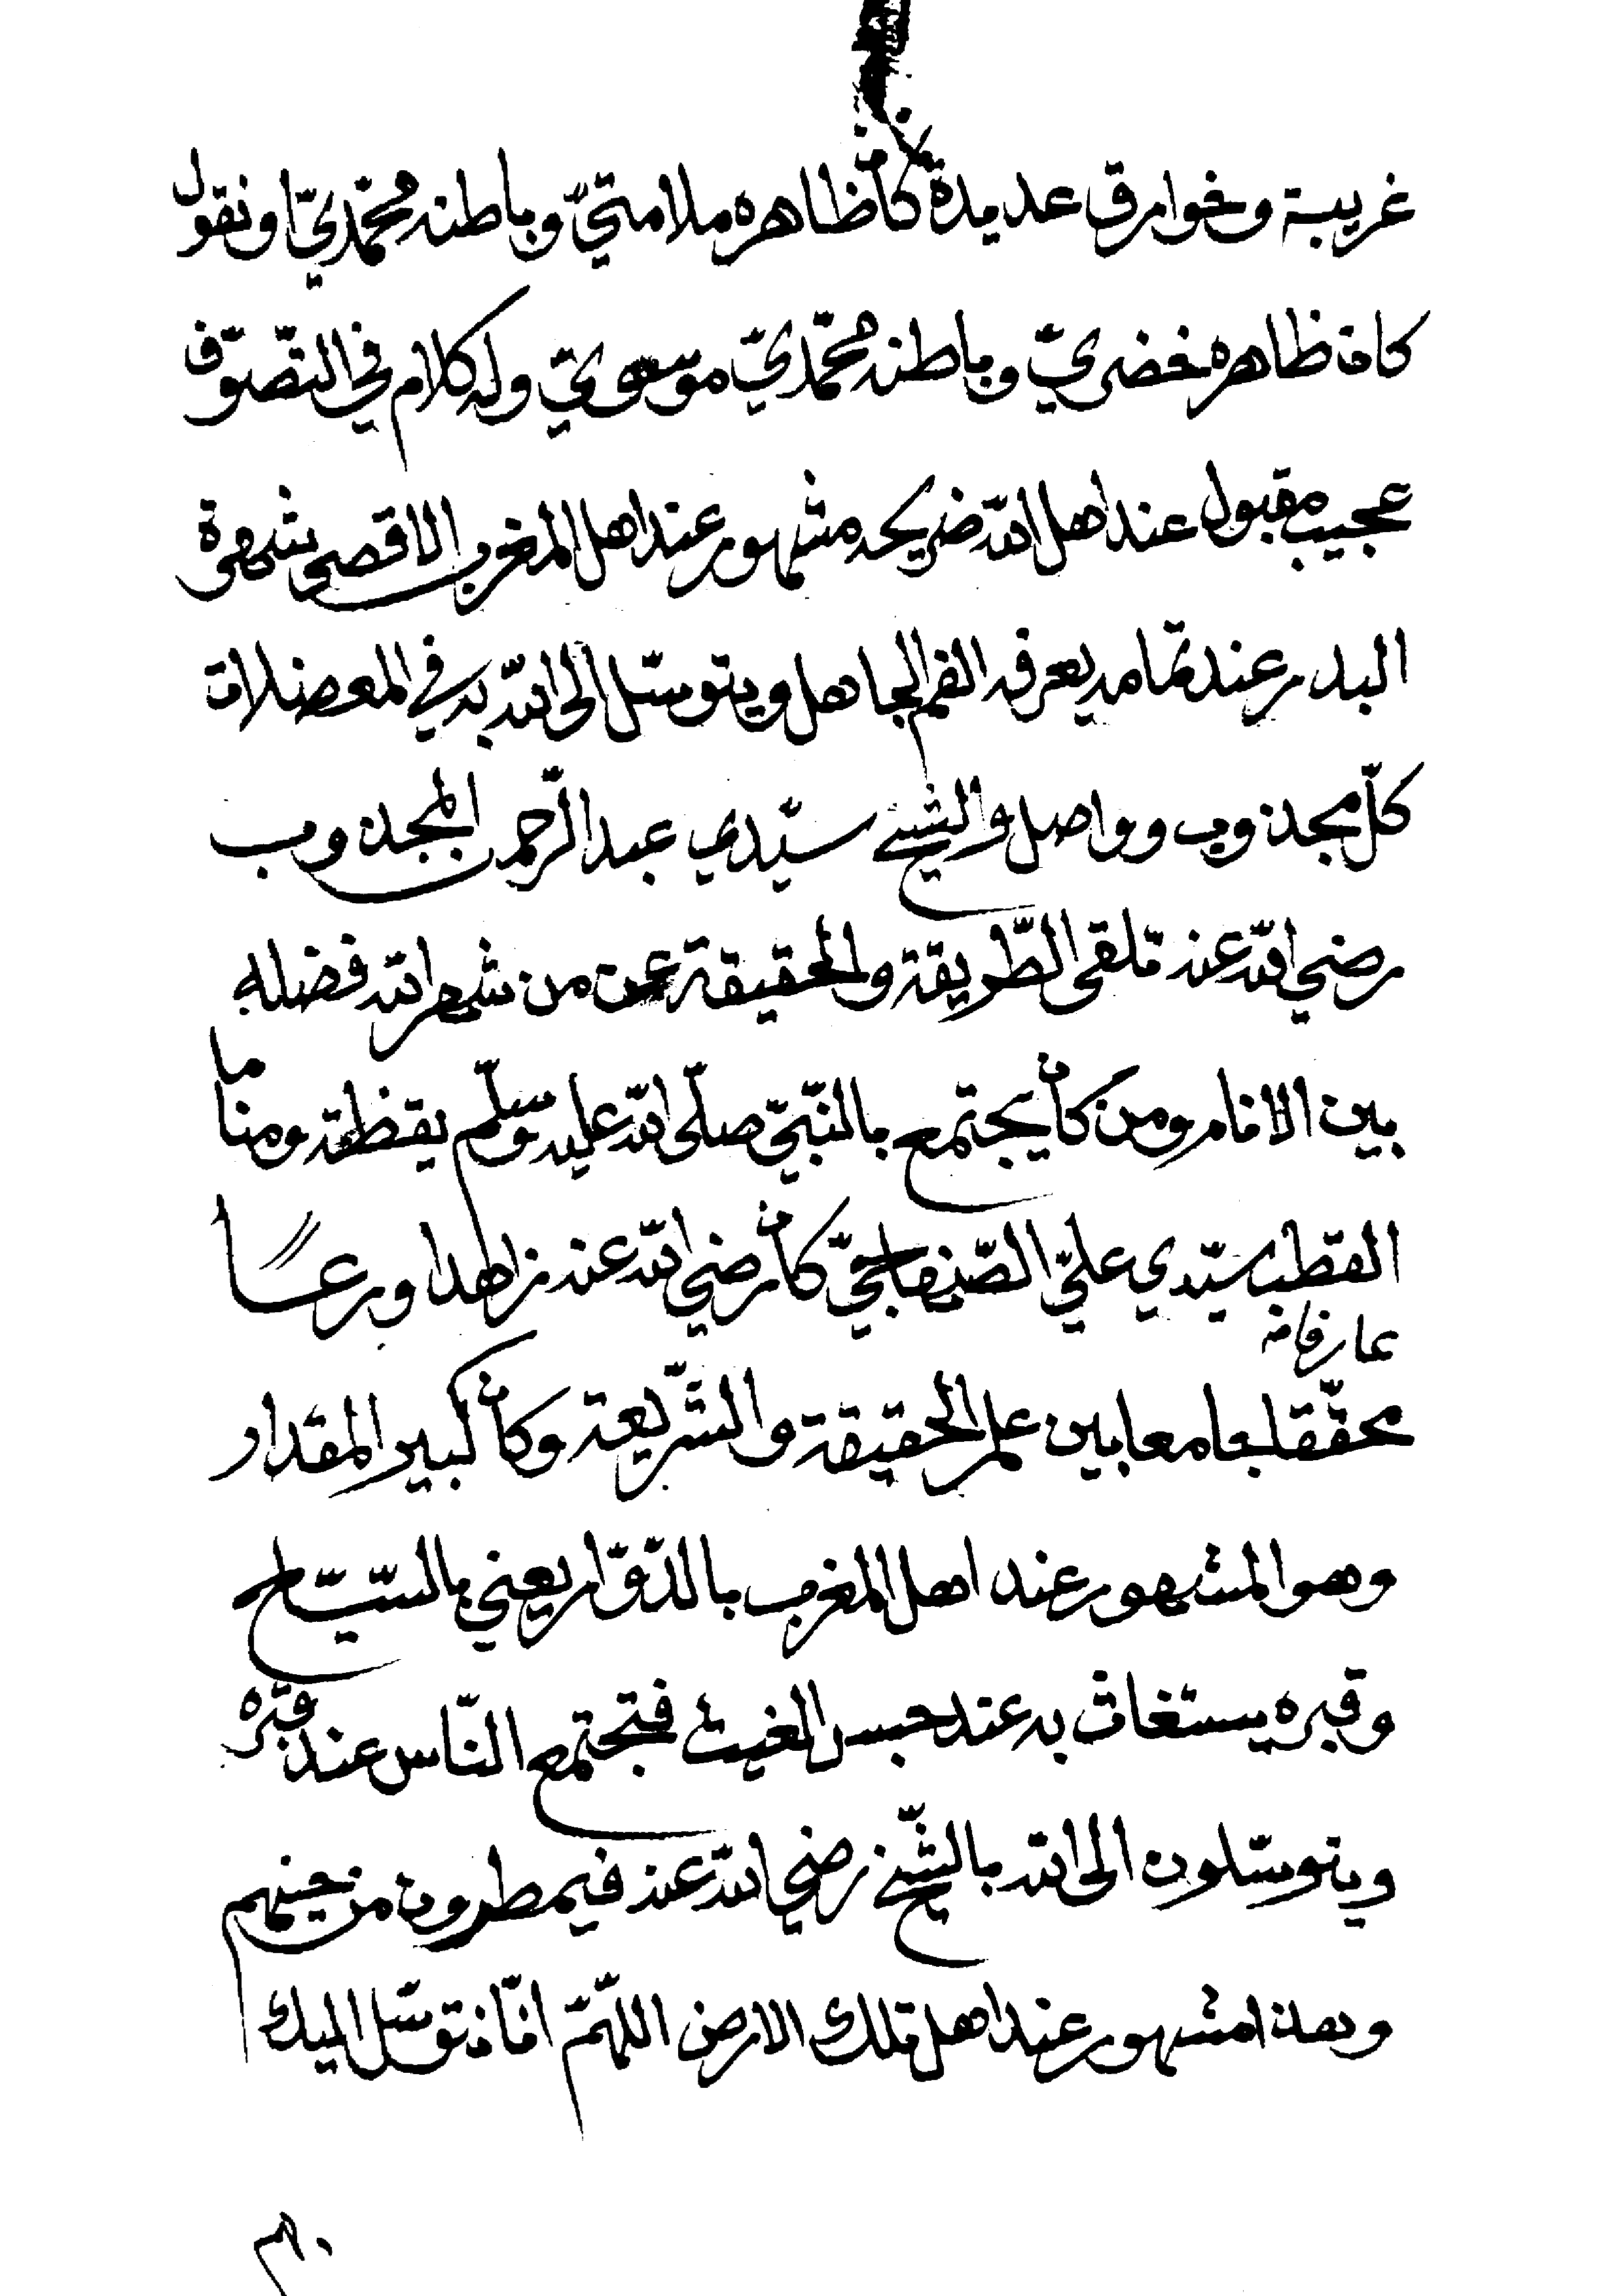 غريبة وخوارق عديدة كان ظاهره ملامتيّ وباطنه محمّديّ او نقول
كان ظاهره خضريّ وباطنه محمّديّ موسويّ وله كلام في التصّوّف
عجيب مقبول عند اهل الله ضريحه مشهور عند اهل المغرب الاقصى شهرة
البدر عند تمامه يعرفه الفم الجاهل ويتوسّل الى الله به في المعضلات
كلّ مجذوب وواصل والشيخ سيّدي عبد الرّحمن المجذوب
رضي الله عنه تلقى الطّريقة والحقيقة عن من شهر الله فضله
بين الانام ومن كان يجتمع بالنّبيّ صلّى الله عليه وسلّم يقظة ومناما
القطب سيّدي عليّ الصّنهاجيّ كان رضي الله عنه زاهدا ورعًا
عارفا
محقّقا جامعا بين علم الحقيقة والشّريعة وكان كبير المقدار
وهو المشهور عند اهل المغرب بالدّوّار يعني بالسّيّاح
وقبره يستغاث به عند حبس المغيث فتجتمع النّاس عند قبره
ويتوسّلون الى الله بالشّيخ رضي الله عنه فيمطرون من حينهم
وهذا مشهور عند اهل تلك الارض اللّهمّ انّا نتوسّل اليك